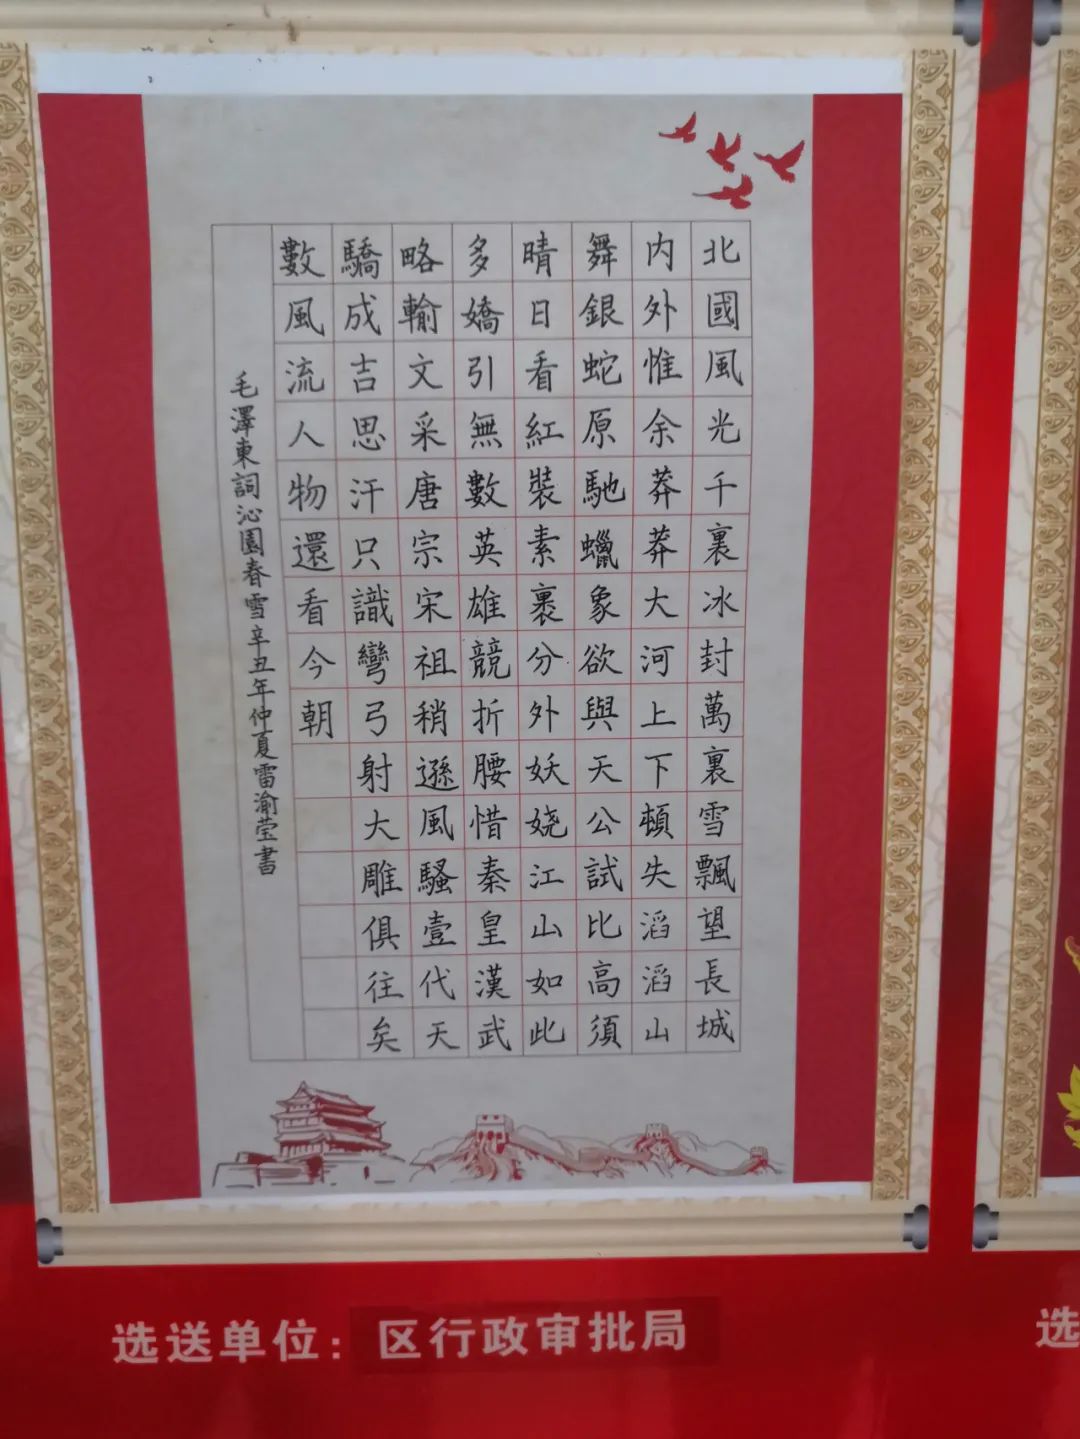 北國風光千裏冰封萬裏雪飄望長城
内外惟余莽莽大河上下頓失滔滔山
舞銀蛇原馳蠟象欲與天公試比高須
晴日看紅裝素裹分外妖娆江山如此
多嬌引無數英雄競折腰惜秦皇漢武
略輸文采唐宗宋祖稍遜風騷壹代天
驕成吉思汗只識彎弓射大雕俱往矣
數風流人物還看今朝
毛澤東詞沁園春雪辛丑年仲夏雷渝莹書
选送单位：区行政审批局
选